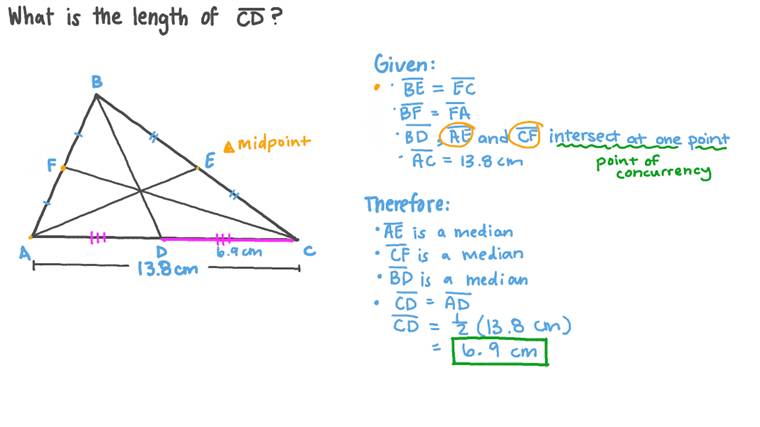 What is the length of C̅D̅?
B
F
E
▲midpoint
A
D
6.9cm
C
13.8cm
Given:
• · B̅E̅ = E̅C̅
· B̅F̅ = F̅A̅
· B̅D̅, A̅E̅ and C̅F̅ intersect at one point
point of
concurrency
· A̅C̅ = 13.8 cm
Therefore:
• A̅E̅ is a median
• C̅F̅ is a median
• B̅D̅ is a median
• C̅D̅ = A̅D̅
C̅D̅ = 1/2 (13.8 cm)
= 6.9 cm